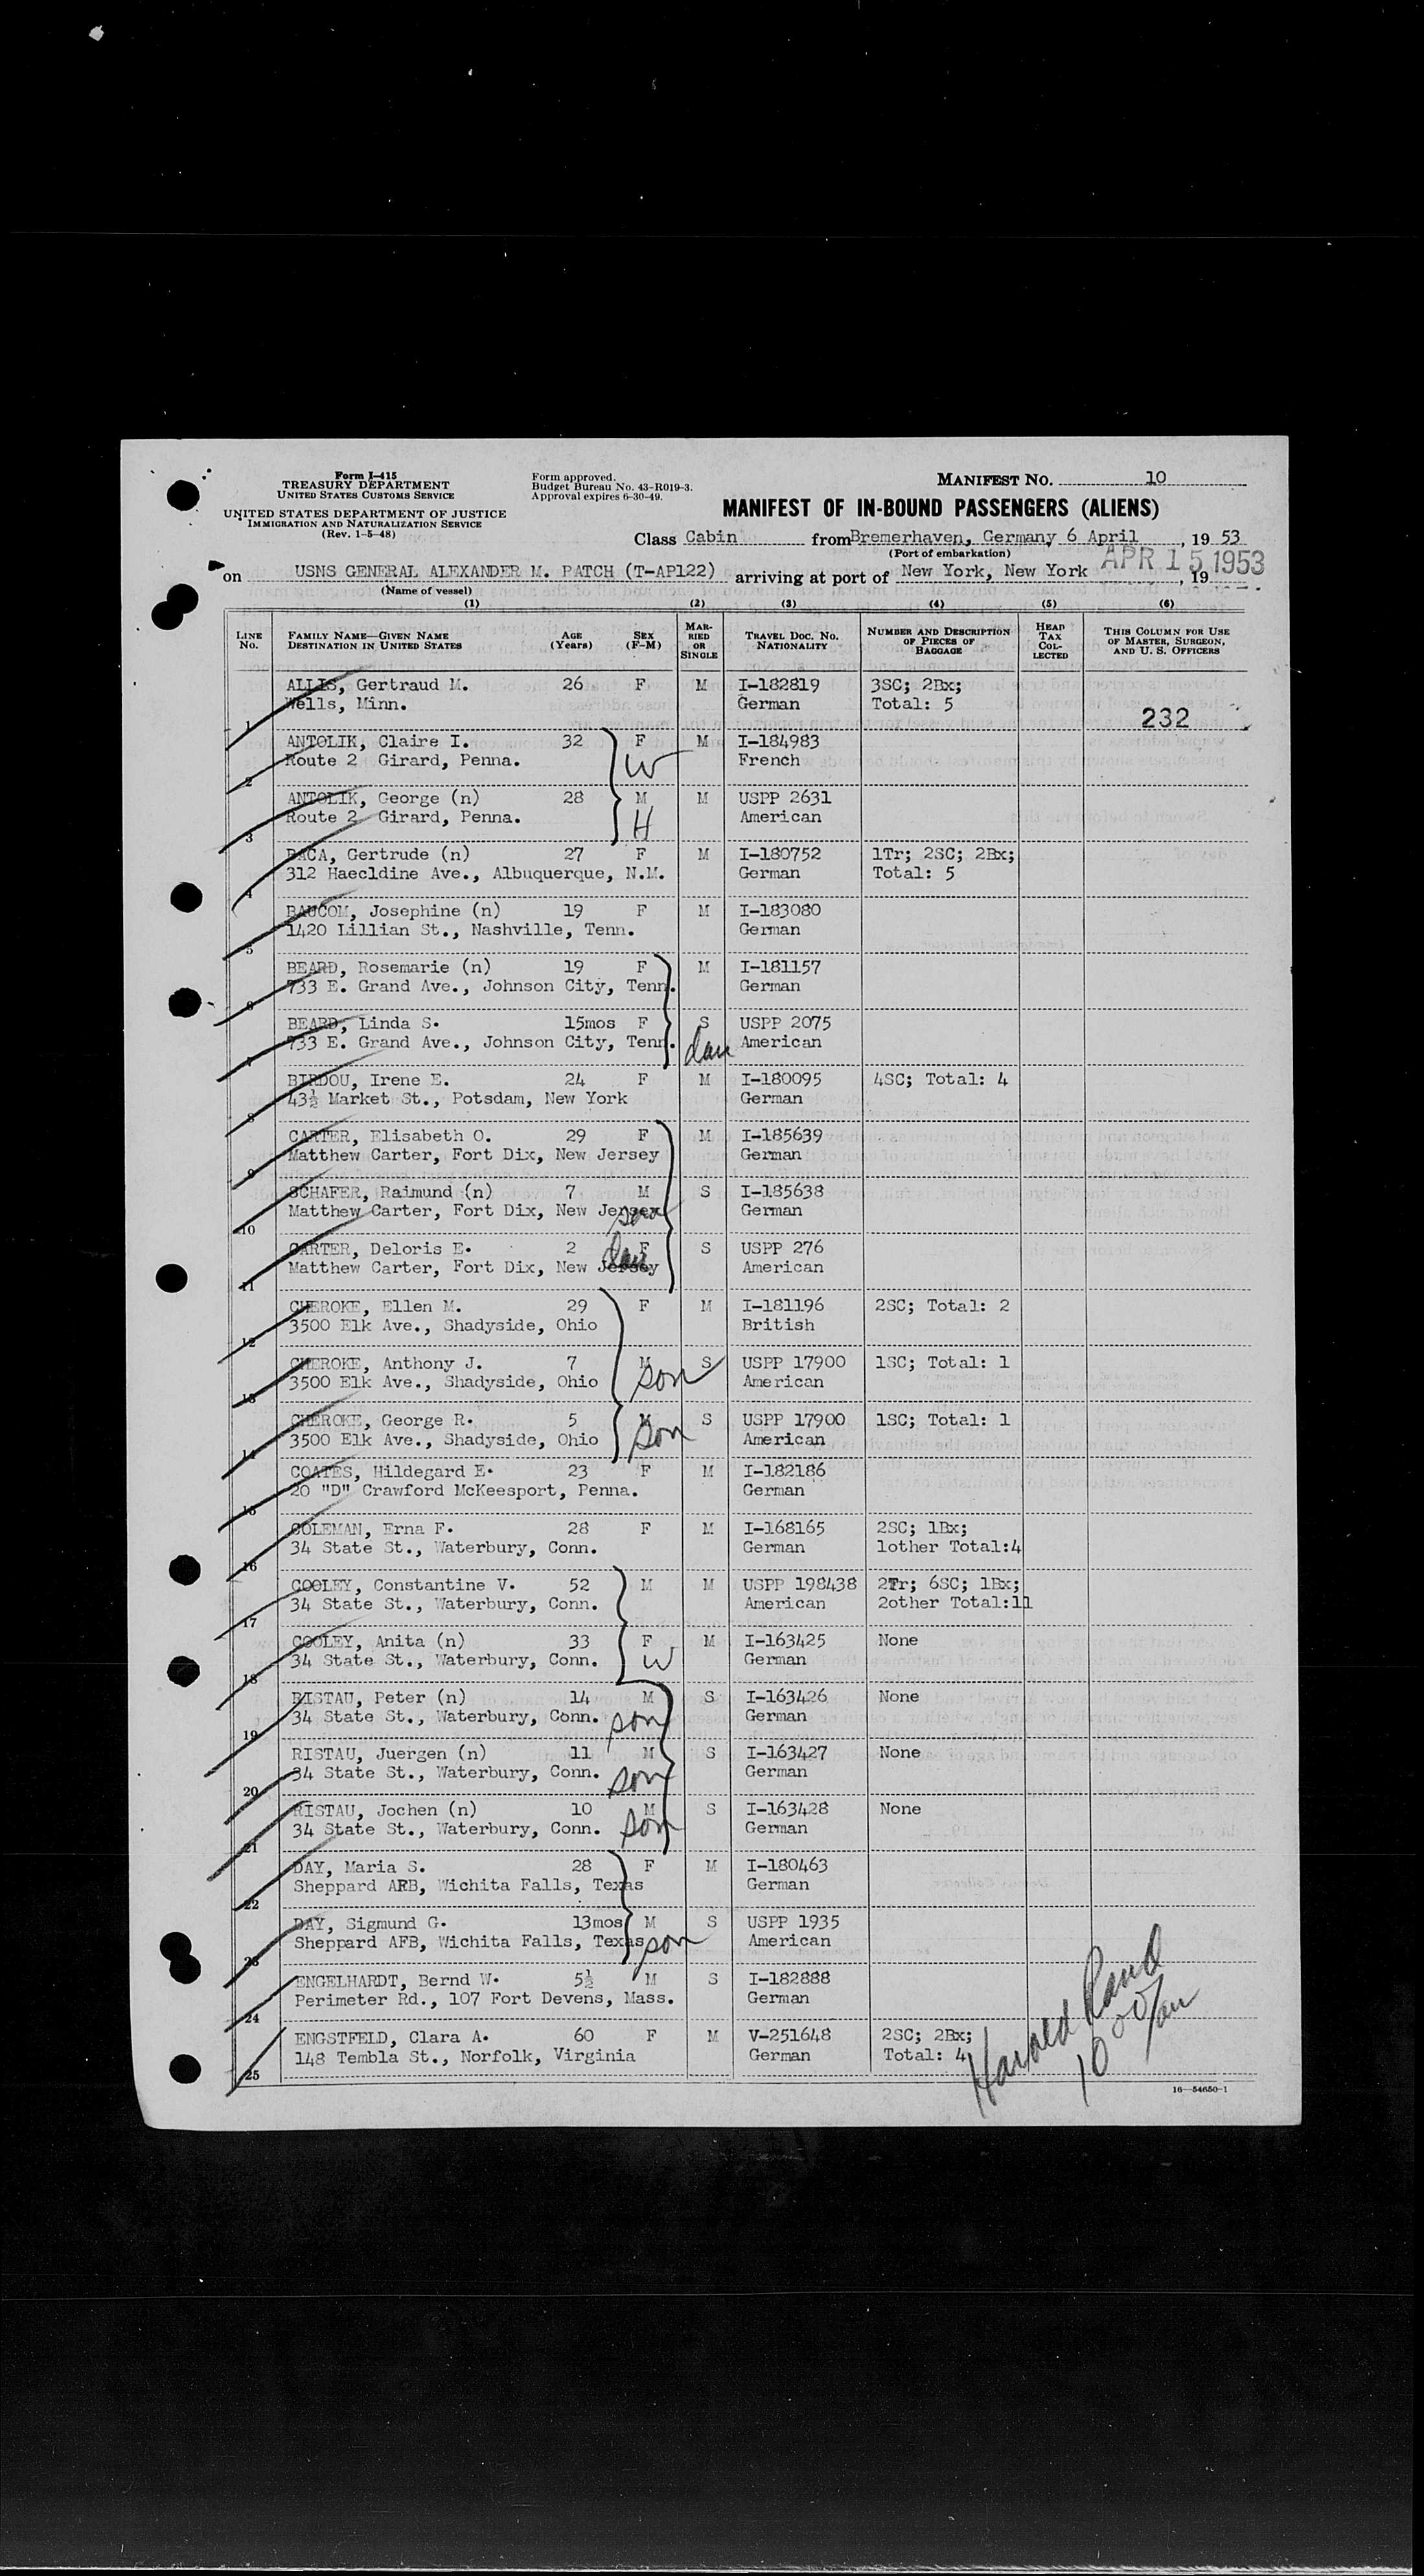 Form I-415
TREASURY DEPARTMENT
UNITED STATES CUSTOMS SERVICE
UNITED STATES DEPARTMENT OF JUSTICE
IMMIGRATION AND NATURALIZATION SERVICE
(Rev. 1-5-48)
Form approved.
Budget Bureau No. 43-R019-3.
Approval expires 6-30-49.
MANIFEST NO. 10
MANIFEST OF IN-BOUND PASSENGERS (ALIENS)
Class Cabin from Bremerhaven, Germany 6 April, 19 53
(Port of embarkation)
on USNS GENERAL ALEXANDER M. PATCH (T-AP122) arriving at port of New York, New York APR 15 1953, 19
(Name of vessel)
(1) (2) (3) (4) (5) (6)
LINE NO. FAMILY NAME—GIVEN NAME DESTINATION IN UNITED STATES AGE (Years) SEX (F-M) MARRIED OR SINGLE TRAVEL DOC. NO. NATIONALITY NUMBER AND DESCRIPTION OF PIECES OF BAGGAGE HEAD TAX COLLECTED THIS COLUMN FOR USE OF MASTER, SURGEON, AND U. S. OFFICERS
ALLIS, Gertraud M. 26 F M I-182819 3SC; 2Bx;
1 Wells, Minn. German Total: 5 232
ANTOLIK, Claire I. 32 F M I-184983
2 Route 2 Girard, Penna. W French
ANTOLIK, George (n) 28 M M USPP 2631
3 Route 2 Girard, Penna. H American
BACA, Gertrude (n) 27 F M I-180752 1Tr; 2SC; 2Bx;
4 312 Haecldine Ave., Albuquerque, N.M. German Total: 5
BAUCOM, Josephine (n) 19 F M I-183080
5 1420 Lillian St., Nashville, Tenn. German
BEARD, Rosemarie (n) 19 F M I-181157
6 733 E. Grand Ave., Johnson City, Tenn. German
BEARD, Linda S. 15mos F S USPP 2075
7 733 E. Grand Ave., Johnson City, Tenn. dau American
BIRDOU, Irene E. 24 F M I-180095 4SC; Total: 4
8 43½ Market St., Potsdam, New York German
CARTER, Elisabeth O. 29 F M I-185639
9 Matthew Carter, Fort Dix, New Jersey German
SCHAFER, Raimund (n) 7 M S I-185638
10 Matthew Carter, Fort Dix, New Jersey son German
CARTER, Deloris E. 2 F dau S USPP 276
11 Matthew Carter, Fort Dix, New Jersey American
CHEROKE, Ellen M. 29 F M I-181196 2SC; Total: 2
12 3500 Elk Ave., Shadyside, Ohio British
CHEROKE, Anthony J. 7 M S USPP 17900 1SC; Total: 1
13 3500 Elk Ave., Shadyside, Ohio son American
CHEROKE, George R. 5 M S USPP 17900 1SC; Total: 1
14 3500 Elk Ave., Shadyside, Ohio son American
COATES, Hildegard E. 23 F M I-182186
15 20 "D" Crawford McKeesport, Penna. German
COLEMAN, Erna F. 28 F M I-168165 2SC; 1Bx;
16 34 State St., Waterbury, Conn. German 1other Total:4
COOLEY, Constantine V. 52 M M USPP 198438 2Tr; 6SC; 1Bx;
17 34 State St., Waterbury, Conn. American 2other Total:11
COOLEY, Anita (n) 33 F M I-163425 None
18 34 State St., Waterbury, Conn. W German
RISTAU, Peter (n) 14 M S I-163426 None
19 34 State St., Waterbury, Conn. son German
RISTAU, Juergen (n) 11 M S I-163427 None
20 34 State St., Waterbury, Conn. son German
RISTAU, Jochen (n) 10 M S I-163428 None
21 34 State St., Waterbury, Conn. son German
DAY, Maria S. 28 F M I-180463
22 Sheppard AFB, Wichita Falls, Texas German
DAY, Sigmund G. 13mos M S USPP 1935
23 Sheppard AFB, Wichita Falls, Texas son American
ENGELHARDT, Bernd W. 5½ M S I-182888
24 Perimeter Rd., 107 Fort Devens, Mass. German
ENGSTFELD, Clara A. 60 F M V-251648 2SC; 2Bx;
25 148 Tembla St., Norfolk, Virginia German Total: 4
Harold Rand
10 00/am
16—54650-1